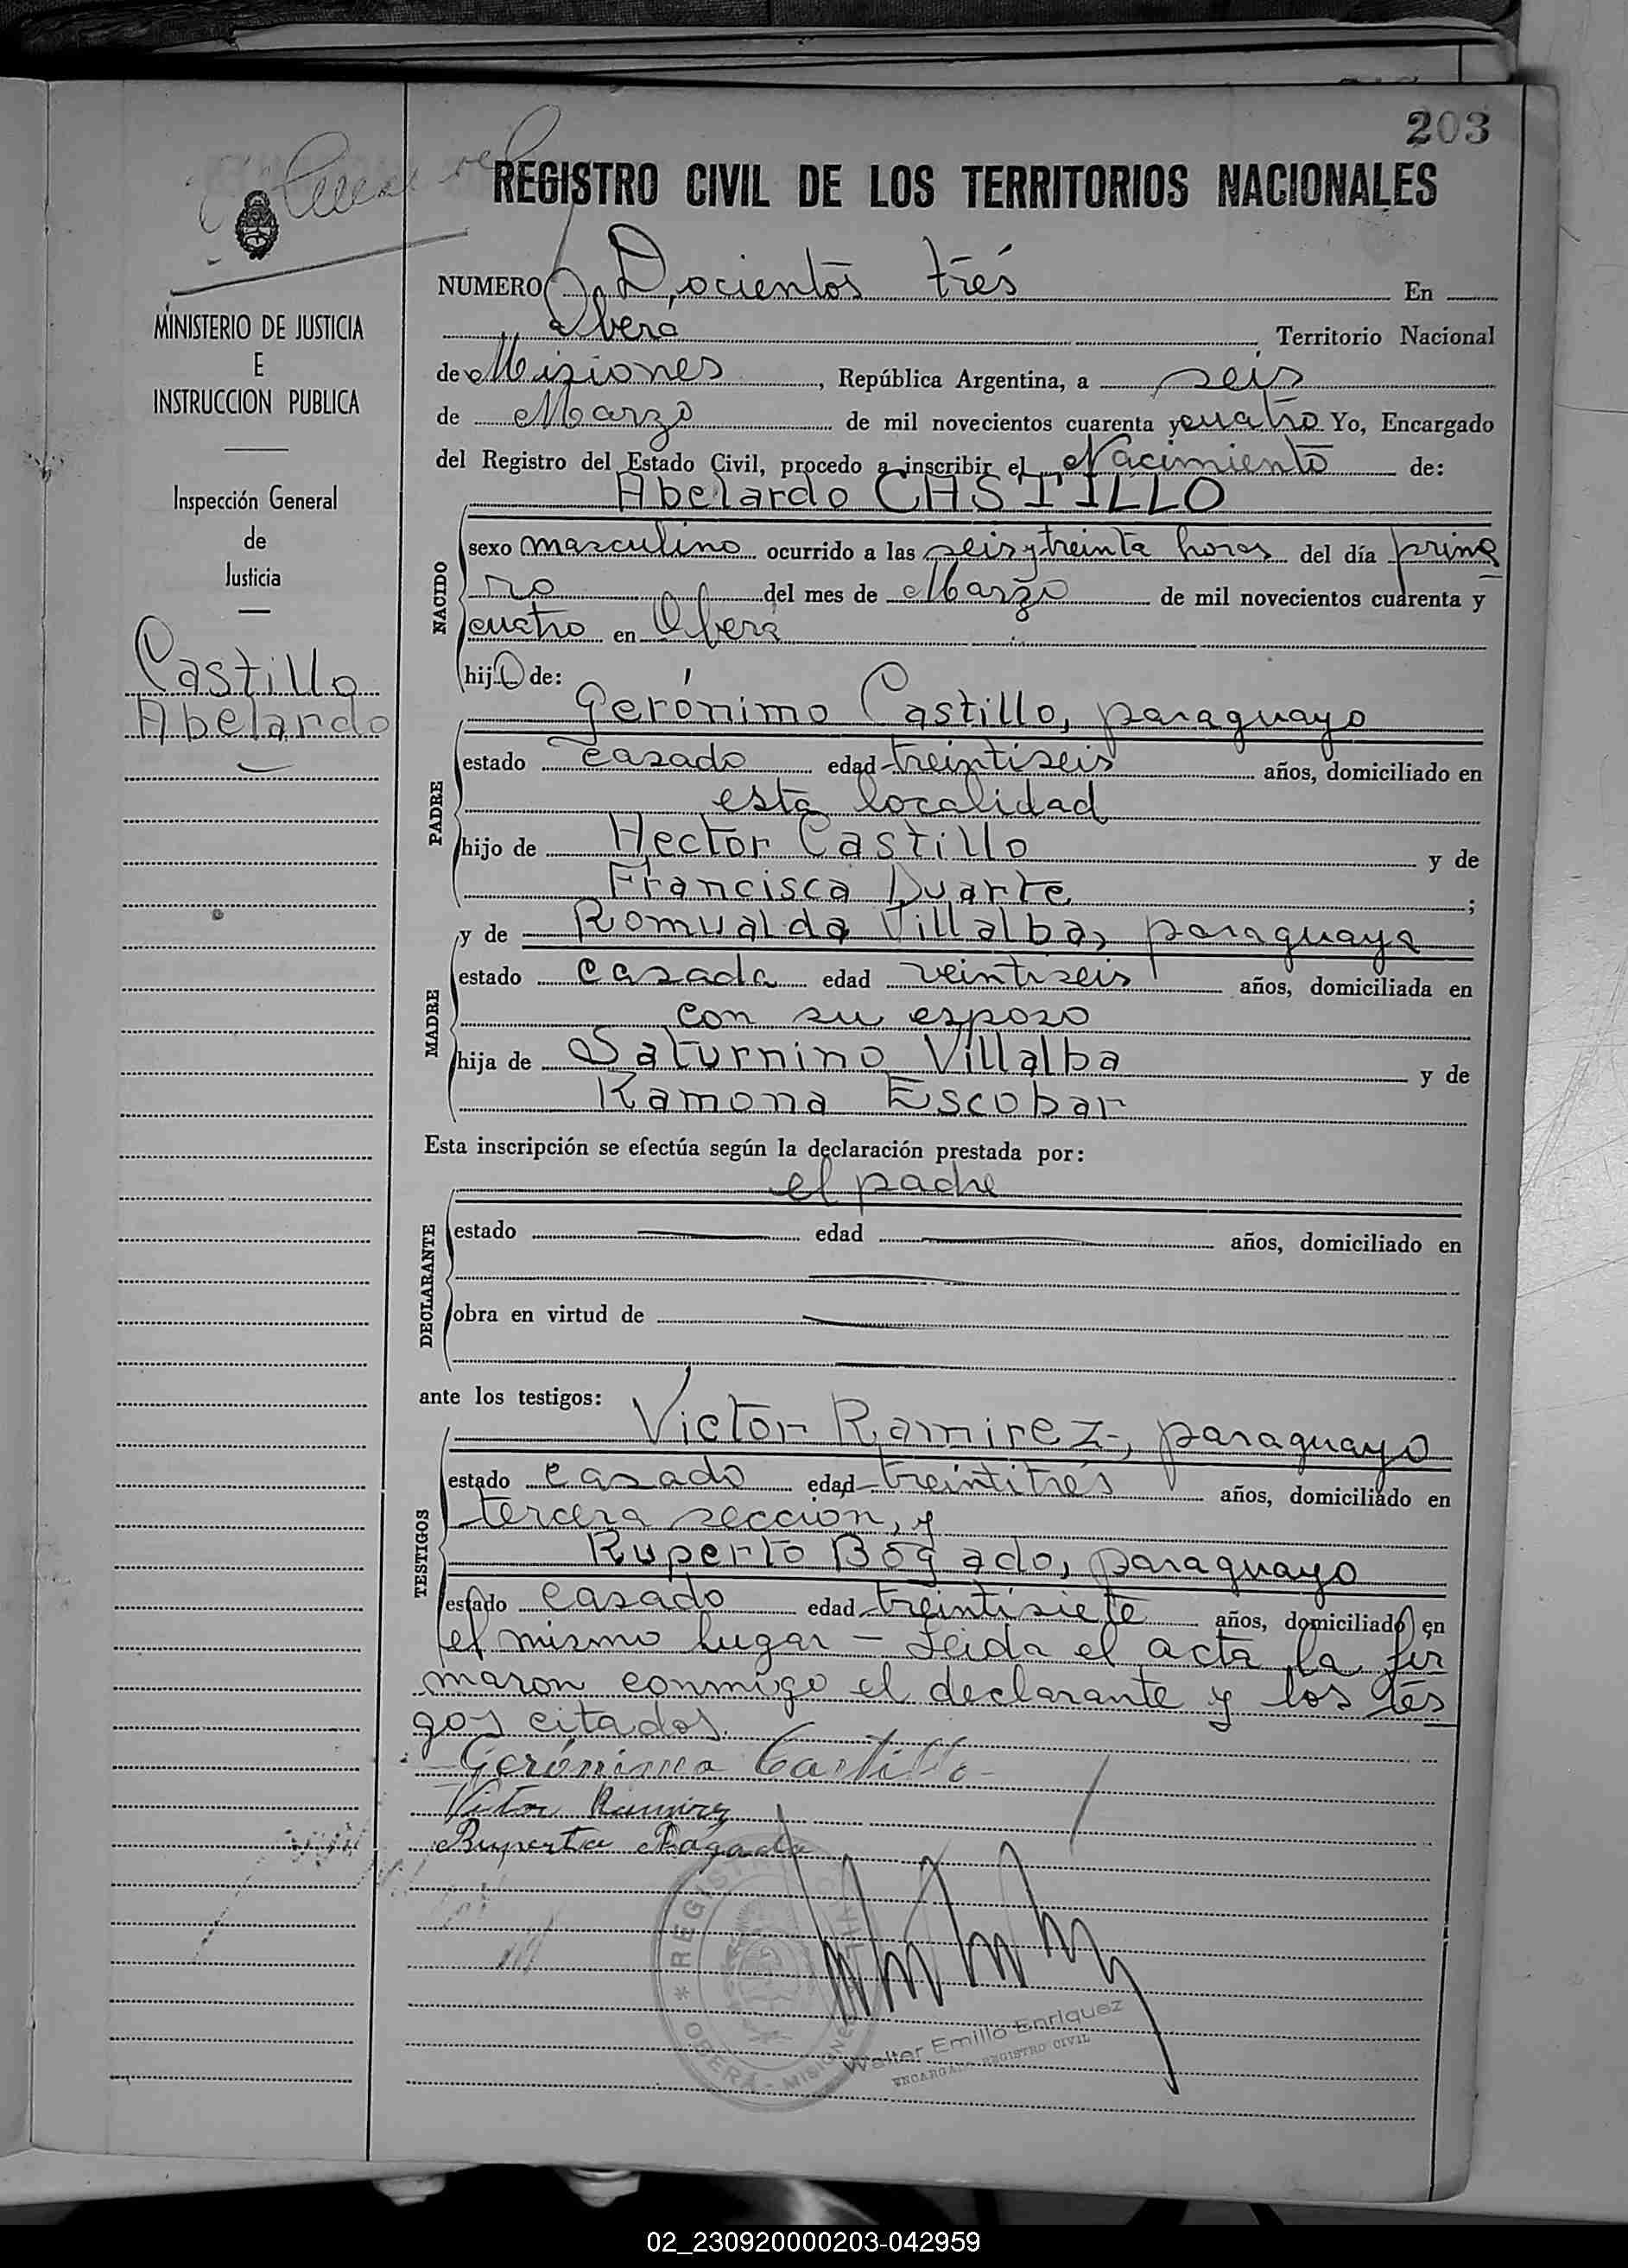 203
REGISTRO CIVIL DE LOS TERRITORIOS NACIONALES
MINISTERIO DE JUSTICIA
E
INSTRUCCION PUBLICA
Inspección General
de
Justicia
Castillo
Abelardo
NUMERO Docientos trés En
Oberá Territorio Nacional
de Misiones, República Argentina, a seis
de Marzo de mil novecientos cuarenta y cuatro Yo, Encargado
del Registro del Estado Civil, procedo a inscribir el Nacimiento de:
Abelardo CASTILLO
NACIDO
sexo masculino ocurrido a las seis y treinta horas del día prime
ro del mes de Marzo de mil novecientos cuarenta y
cuatro en Oberá
hijo de:
Gerónimo Castillo, paraguayo
PADRE
estado casado edad treintiseis años, domiciliado en
esta localidad
hijo de Hector Castillo y de
Francisca Duarte ;
y de Romualda Villalba, paraguaya
MADRE
estado casada edad veintiseis años, domiciliada en
con su esposo
hija de Saturnino Villalba y de
Ramona Escobar
Esta inscripción se efectúa según la declaración prestada por:
el padre
DECLARANTE
estado edad años, domiciliado en
obra en virtud de
ante los testigos:
Victor Ramirez, paraguayo
TESTIGOS
estado casado edad treintitrés años, domiciliado en
tercera seccion, y
Ruperto Bogado, paraguayo
estado casado edad treintisiete años, domiciliado en
el mismo lugar - Leida el acta la fir
maron conmigo el declarante y los tes
gos citados.
Gerónimo Castillo
Vitor Ramirez
Ruperto Bogado
REGISTRO CIVIL
OBERÁ - MISIONES
Walter Emilio Enriquez
ENCARGADO REGISTRO CIVIL
02_230920000203-042959